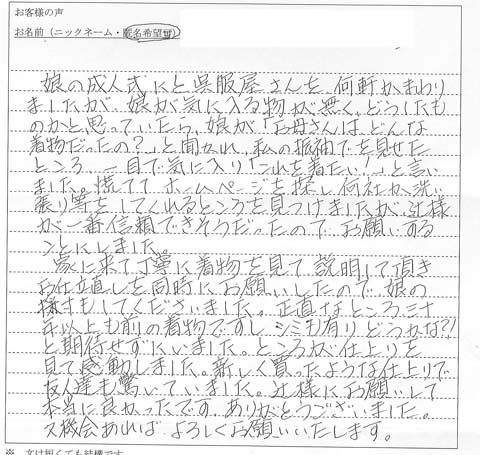 お客様の声
お名前（ニックネーム・匿名希望可）
娘の成人式にと呉服屋さんを何軒かまわり
ましたが、娘が気に入る物が無く、どうしたも
のかと思っていたら、娘が「お母さんは、どんな
着物だったの？」と聞かれ、私の振袖でを見せた
ところ、一目で気に入り「これを着たい！」と言い
ました。慌てて ホームページを探し、何社か洗い
張り等をしてくれるところを見つけましたが、辻様
が一番信頼できそうだったので、お願いする
ことにしました。
家に来て丁寧に着物を見て、説明して頂き
お仕立直しを同時にお願いしたので、娘の
採寸もしてくださいました。正直なところ三十
年以上も前の着物ですし、シミも有り どうかな？！
と期待せずにいました。ところが仕上りを
見て感動しました。新しく買ったような仕上りで
友人達も驚いていました。辻様にお願いして
本当に良かったです。ありがとうございました。
又機会あれば よろしくお願いいたします。
※ 文は短くても結構です